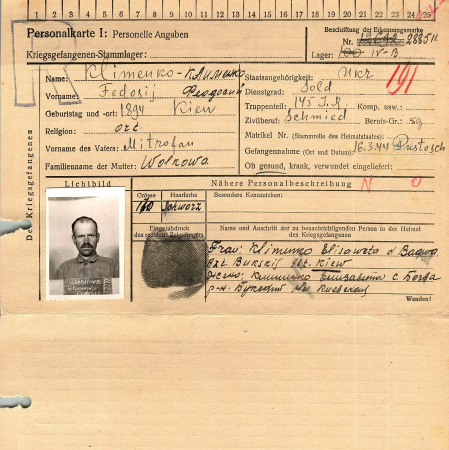 1 2 3 4 5 6 7 8 9 10 11 12 13 14 15 16 17 18 19 20 21 22 23 24 25
Personalkarte I: Personelle Angaben
Beschriftung der Erkennungsmarke
Kriegsgefangenen-Stammlager:
Nr. 288511
Lager: IV-B
Des Kriegsgefangenen
Name: Klimenko - Клименко
Vorname: Fedosij Феодосий
Geburtstag und -ort: 1894 Kiew
Religion: ort.
Vorname des Vaters: Mitrofan
Familienname der Mutter: Wolkowa
Staatsangehörigkeit: Ukr
191
Dienstgrad: Sold
Truppenteil: 145 J.R. Komp. usw.:
Zivilberuf: Schmied Berufs-Gr.: 59
Matrikel Nr. (Stammrolle des Heimatstaates):
Gefangennahme (Ort und Datum): 16.3.44
Ob gesund, krank, verwundet eingeliefert:
Lichtbild
Nähere Personalbeschreibung
N O
Grösse
Haarfarbe
Besondere Kennzeichen:
Schworz
Fingerabdruck
Name und Anschrift der zu benachrichtigenden Person in der Heimat
des Kriegsgefangenen
Frau: Klimenko Elisaweta d
Kiew
Клименко Елизавета с.
р-н.
Wenden!